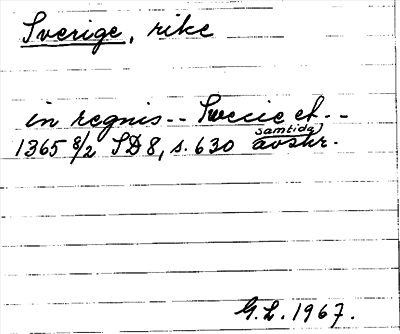 Sverige, rike
in regnis -- Swecie et --
samtida)
1365 8/2 SD 8, s. 630 avskr.
G.L. 1967.